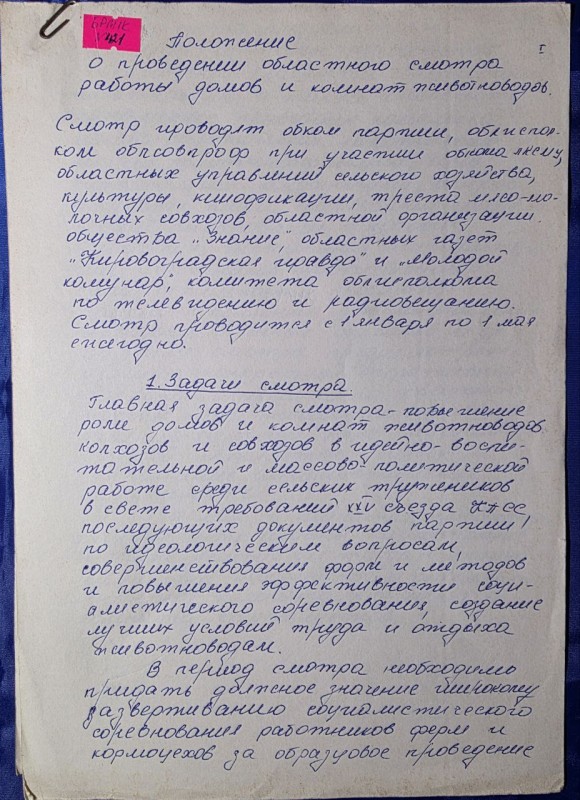 421
I
Положение
о проведении областного смотра
работы домов и комнат животноводов.
Смотр проводят обком партии, облиспол-
ком облсовпроф при участии обкома ЛКСМУ,
областных управлений сельского хозяйства,
культуры, кинофикации, треста мясо-мо-
лочных совхозов, областной организации
общества "Знание", областных газет
"Кировоградская правда" и "Молодой
коммунар", комитета облисполкома
по телевидению и радиовещанию.
Смотр проводится с 1 января по 1 мая
ежегодно.
1. Задачи смотра.
Главная задача смотра - повышение
роли домов и комнат животноводов
колхозов и совхозов в идейно-воспи-
тательной и массово-политической
работе среди сельских тружеников
в свете требований XXV съезда КПСС,
последующих документов партии
по идеологическим вопросам,
совершенствования форм и методов
и повышения эффективности соци-
алистического соревнования, создание
лучших условий труда и отдыха
животноводам.
В период смотра необходимо
придать должное значение широкому
развертыванию социалистического
соревнования работников ферм и
кормоцехов за образцовое проведение